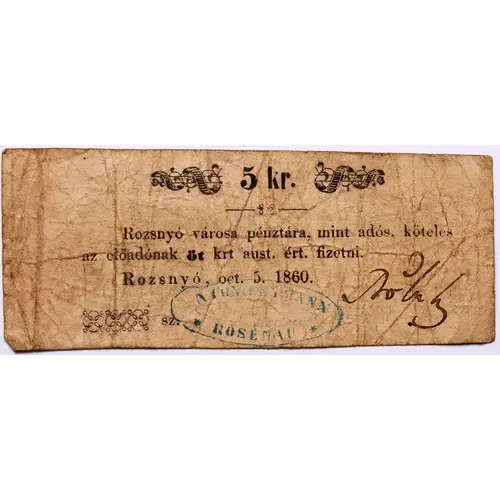 5 kr.
Rozsnyó városa pénztára, mint adós, köteles
az előadónak öt krt aust. ért. fizetni.
Rozsnyó, oct. 5. 1860.
sz.
ROSENAU